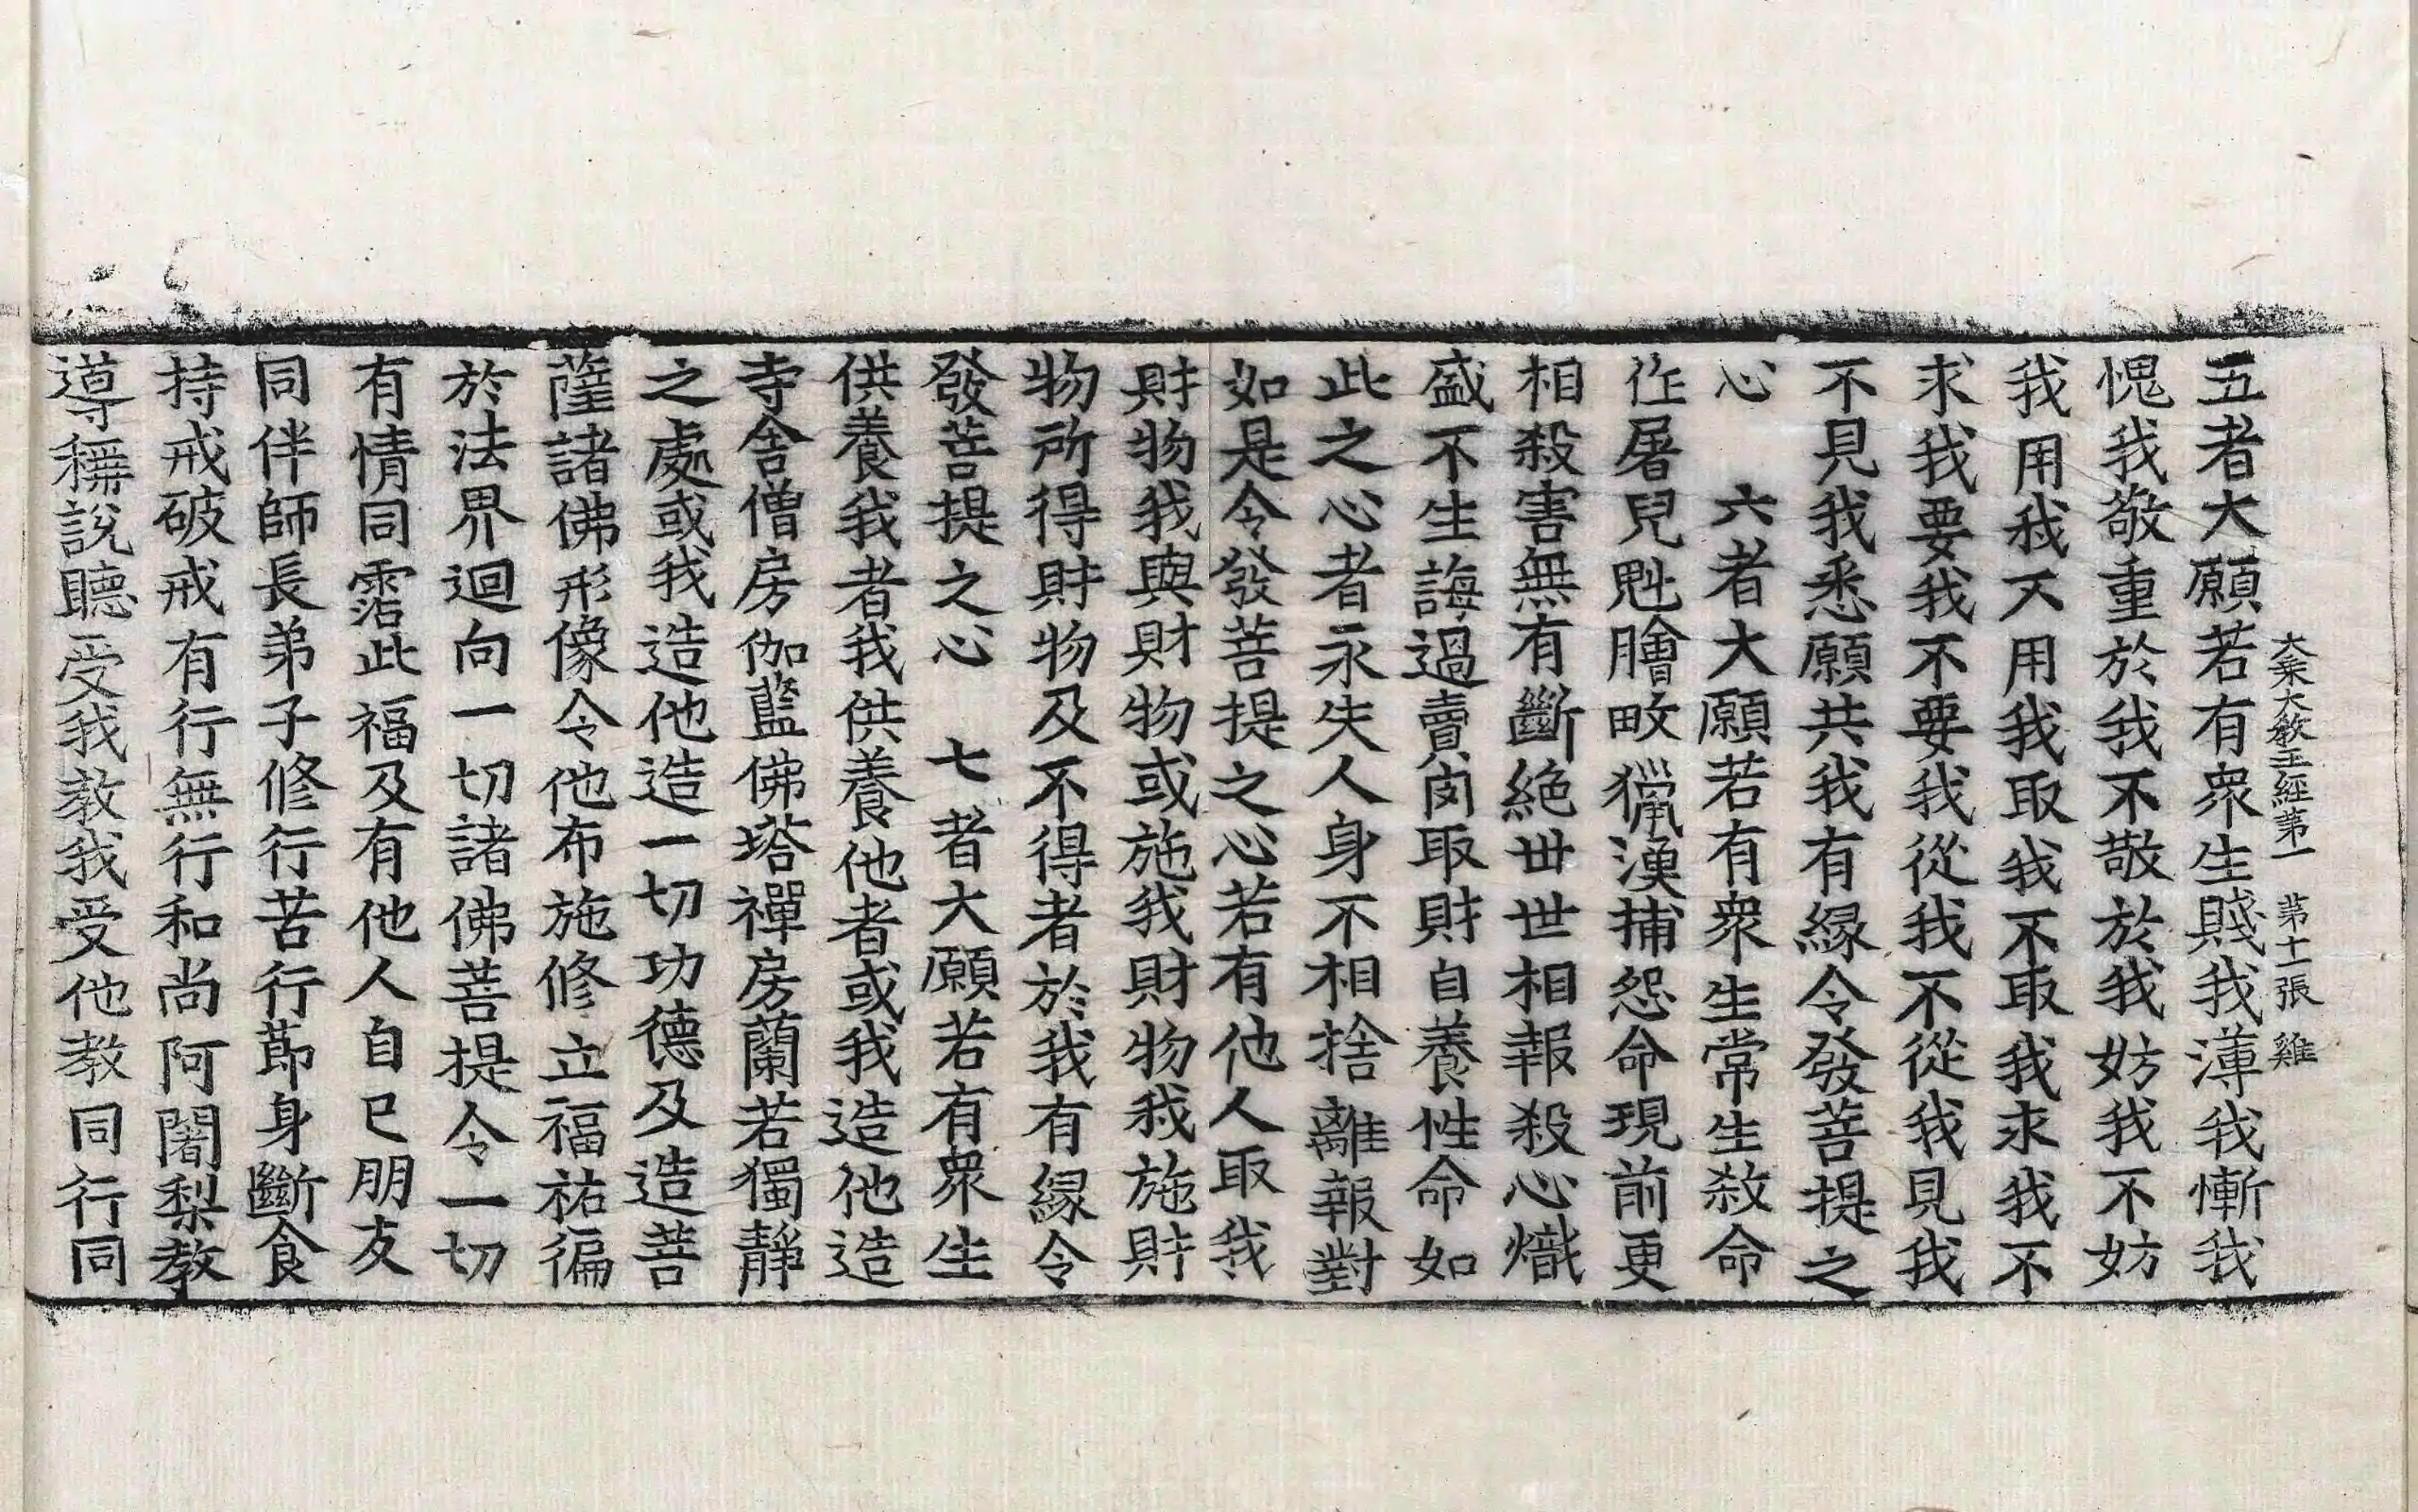 大乘大教王經第一　第十一張　雞
五者大願若有衆生賤我薄我慚我
愧我敬重於我不敬於我妨我不妨
我用我不用我取我不取我求我不
求我要我不要我從我不從我見我
不見我悉願共我有緣令發菩提之
心　六者大願若有衆生常生殺命
作屠兒魁膾畋獵漁捕怨命現前更
相殺害無有斷絶世世相報殺心熾
盛不生誨過賣肉取財自養性命如
此之心者永失人身不相捨離報對
如是令發菩提之心若有他人取我
財物我與財物或施我財物我施財
物所得財物及不得者於我有緣令
發菩提之心　七者大願若有衆生
供養我者我供養他者或我造他造
寺舍僧房伽藍佛塔禪房蘭若獨靜
之處或我造他造一切功德及造菩
薩諸佛形像令他布施修立福祐徧
於法界迴向一切諸佛菩提令一切
有情同霑此福及有他人自已朋友
同伴師長弟子修行苦行莭身斷食
持戒破戒有行無行和尚阿闍梨教
導稱說聽受我教我受他教同行同